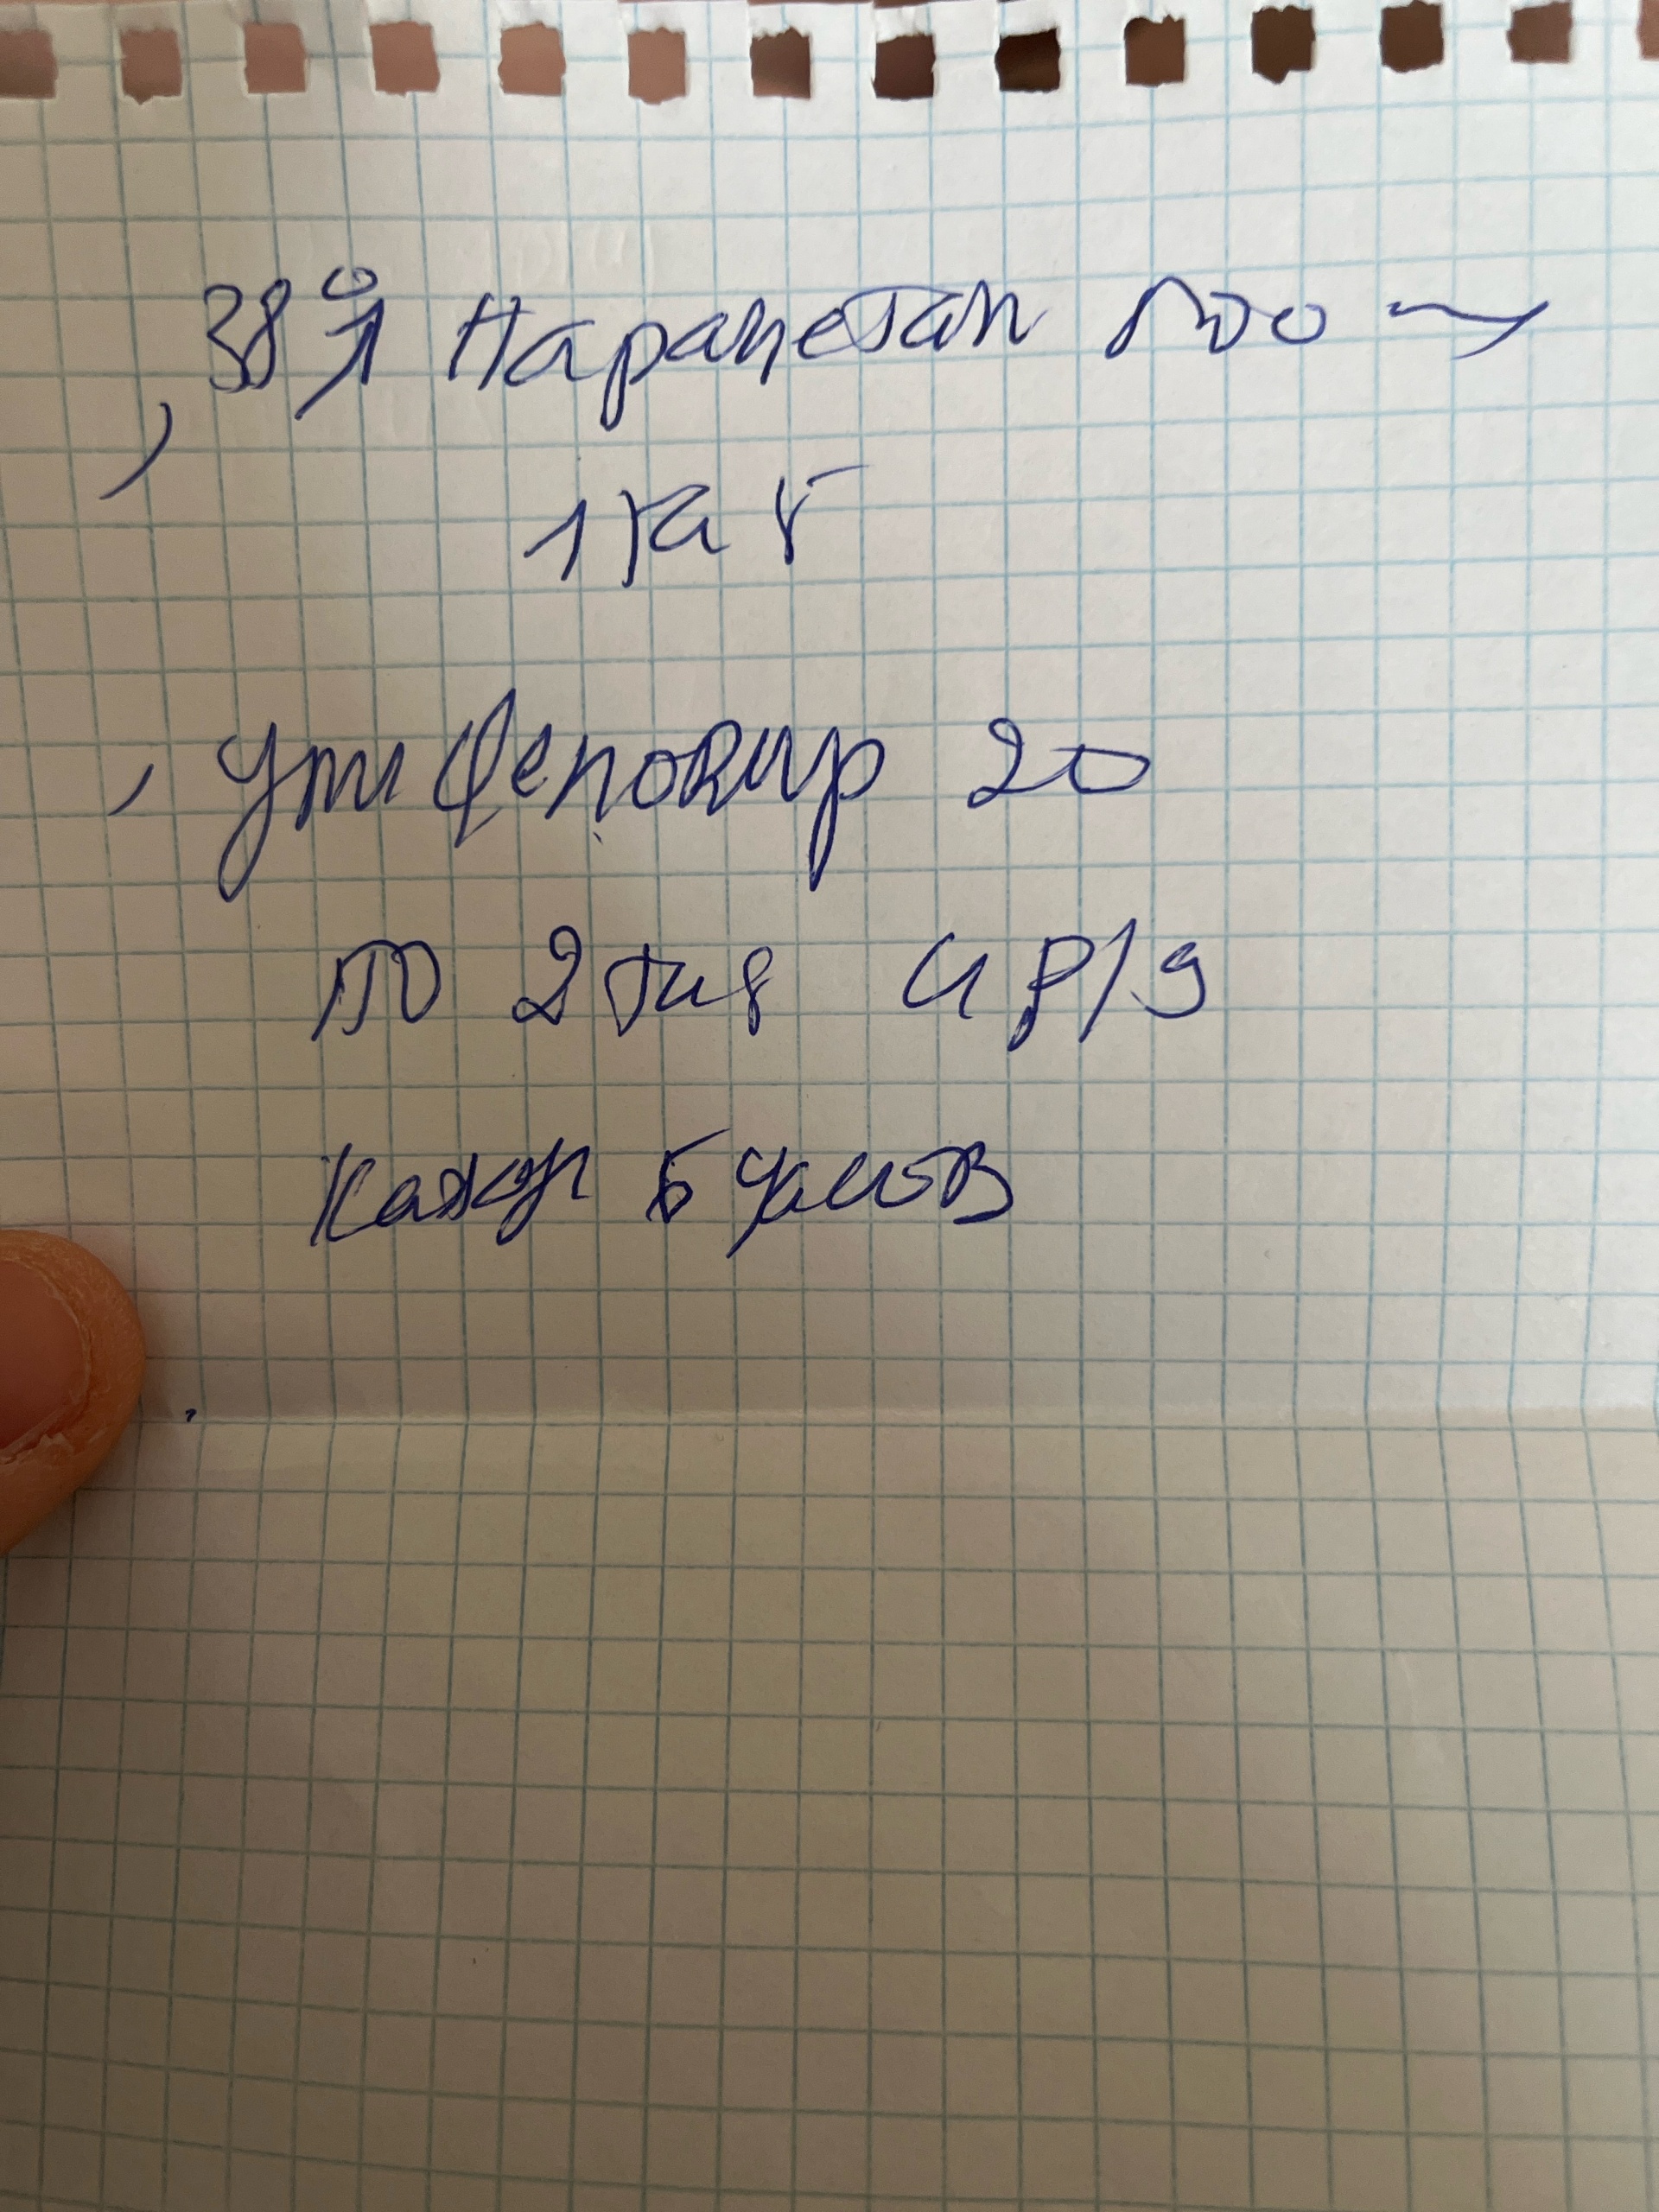 38°↑ парацетам 500 –
1 таб
Умифеновир 20
по 2 таб 4 р/д
кажд 6 часов